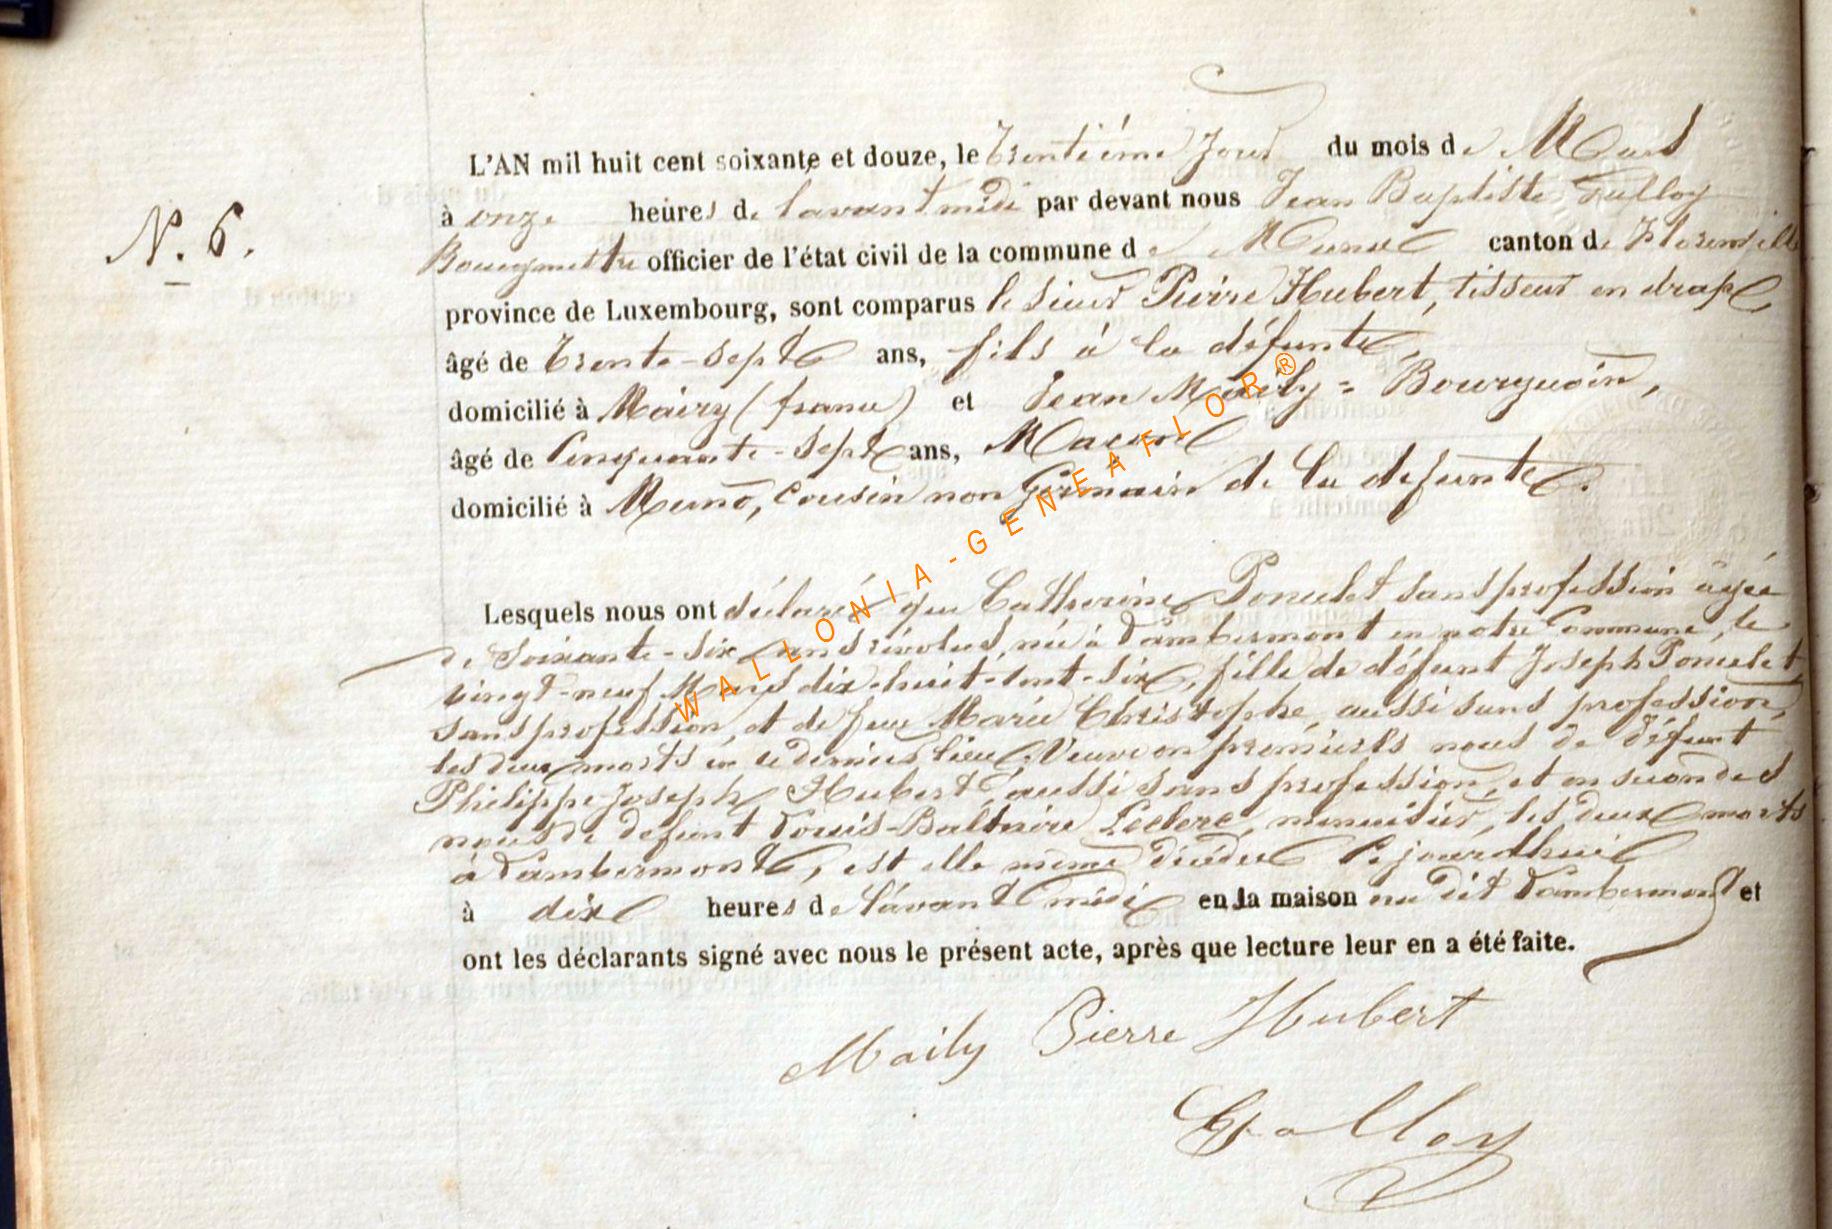 L'AN mil huit cent soixante et douze, le Trentième jour du mois de Mars
N.° 6.
à onze heures de l'avant midi par devant nous Jean Baptiste Galloy
Bourgmestre officier de l'état civil de la commune de Muno canton de Florenville
province de Luxembourg, sont comparus le sieur Pierre Hubert, tisseur en draps
âgé de Trente-sept ans, fils à la défunte,
domicilié à Mairy (france) et Jean Maily = Bourguoin,
âgé de Cinquante-sept ans, Maçon
domicilié à Muno, cousin non Germain de la defunte.
Lesquels nous ont déclaré que Catherine Poncelet sans profession âgée
de Soixante-six ans révolus, née à Lambermont en notre Commune, le
vingt-neuf Mars dix-huit-cent-six, fille de défunt Joseph Poncelet
sans profession, et de feue Marie Christophe, aussi sans profession,
les deux morts en ce dernier lieu, Veuve en premières noces de défunt
Philippe-Joseph Hubert, aussi sans profession, et en secondes
noces de défunt Louis-Baltaire Leclerc, menuisier, les deux morts
à Lambermont, est elle même décédée Ce jourdhui
à dix heures de l'avant midi en la maison au dit Lambermont et
ont les déclarants signé avec nous le présent acte, après que lecture leur en a été faite.
Maily Pierre Hubert
Galloy
WALLONIA-GENEAFLOR®